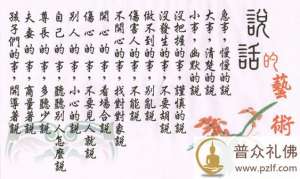 說話的藝術
急事，慢慢的說
大事，清楚的說
小事，幽默的說
沒把握的事，謹慎的說
沒發生的事，不要胡說
做不到的事，別亂說
傷害人的事，不能說
不開心的事，找對對象說
開心的事，看場合說
傷心的事，不要見人就說
別人的事，小心的說
自己的事，聽聽別人怎麼說
尊長的事，多聽少說
夫妻的事，商量著說
孩子們的事，開導著說
普众礼佛
www.pzlf.com